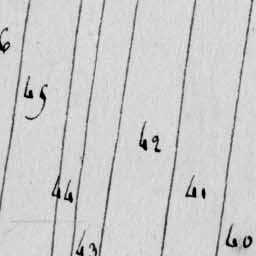 45
42
44
41
43
40